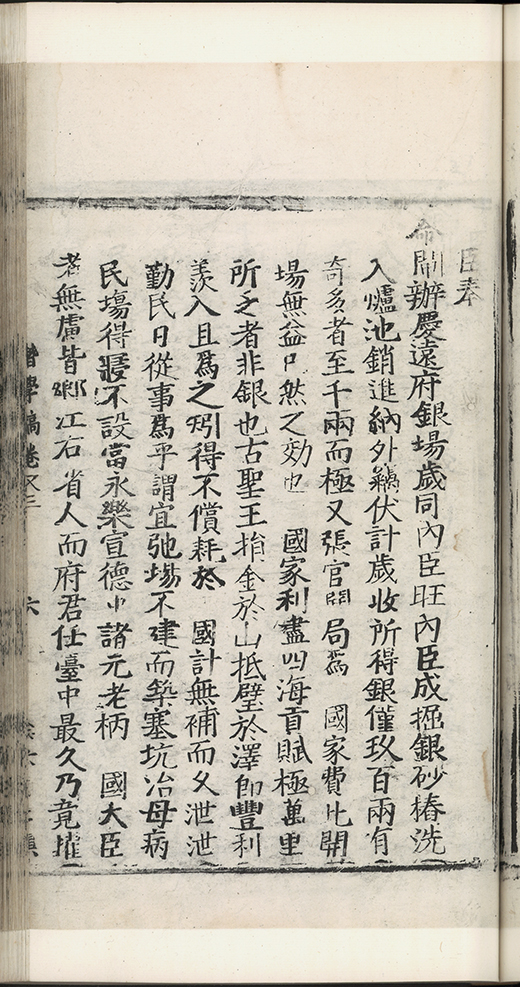 臣奉
命開辦慶遠府銀場歲同內臣旺內臣成掘銀砂樁洗
入爐池銷進納外竊伏計歲收所得銀僅玖百兩有
奇多者至千兩而極又張官開局爲 國家費比開
場無益只然之効也 國家利盡四海貢賦極萬里
所乏者非銀也古聖王捐金於山抵璧於澤即豐利
羨入且爲之矧得不償耗於 國計無補而父泄泄
勤民日從事爲乎謂宜弛場不建而築塞坑冶毋病
民場得寢不設當永樂宣德中諸元老柄 國大臣
者無慮皆鄉江右省人而府君仕臺中最久乃竟擢
學稿卷之三 六